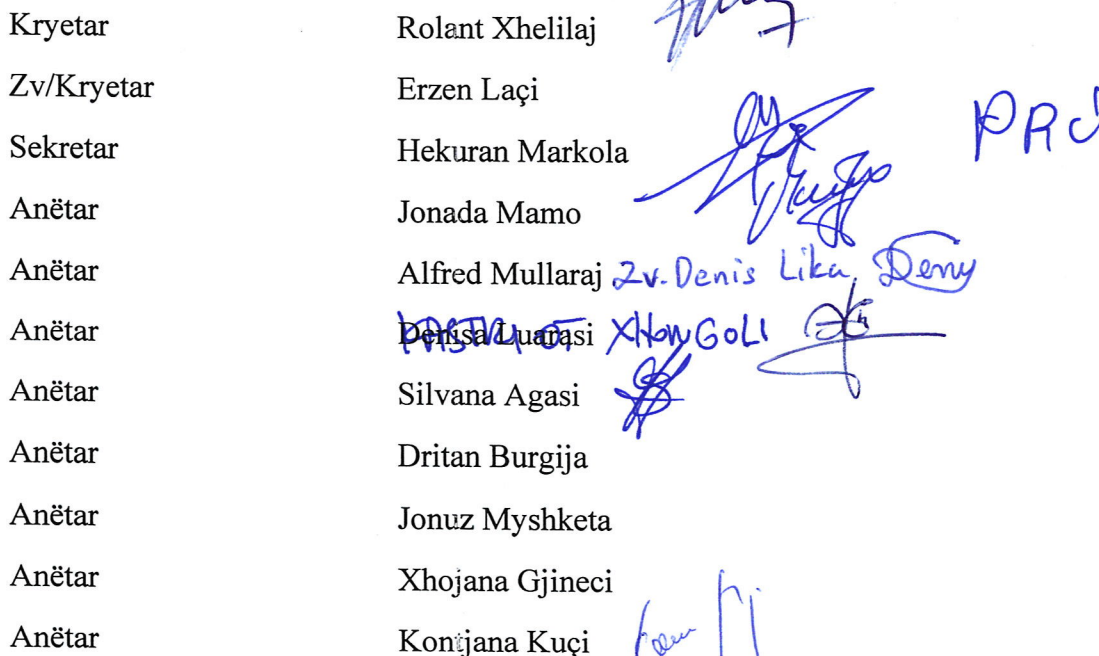 Kryetar Rolant Xhelilaj
Zv/Kryetar Erzen Laçi
Sekretar Hekuran Markola PRO
Anëtar Jonada Mamo
Anëtar Alfred Mullaraj Zv. Denis Lika, Deny
Anëtar Denisa Luarasi XHONGOLI
Anëtar Silvana Agasi
Anëtar Dritan Burgija
Anëtar Jonuz Myshketa
Anëtar Xhojana Gjineci
Anëtar Kontjana Kuçi